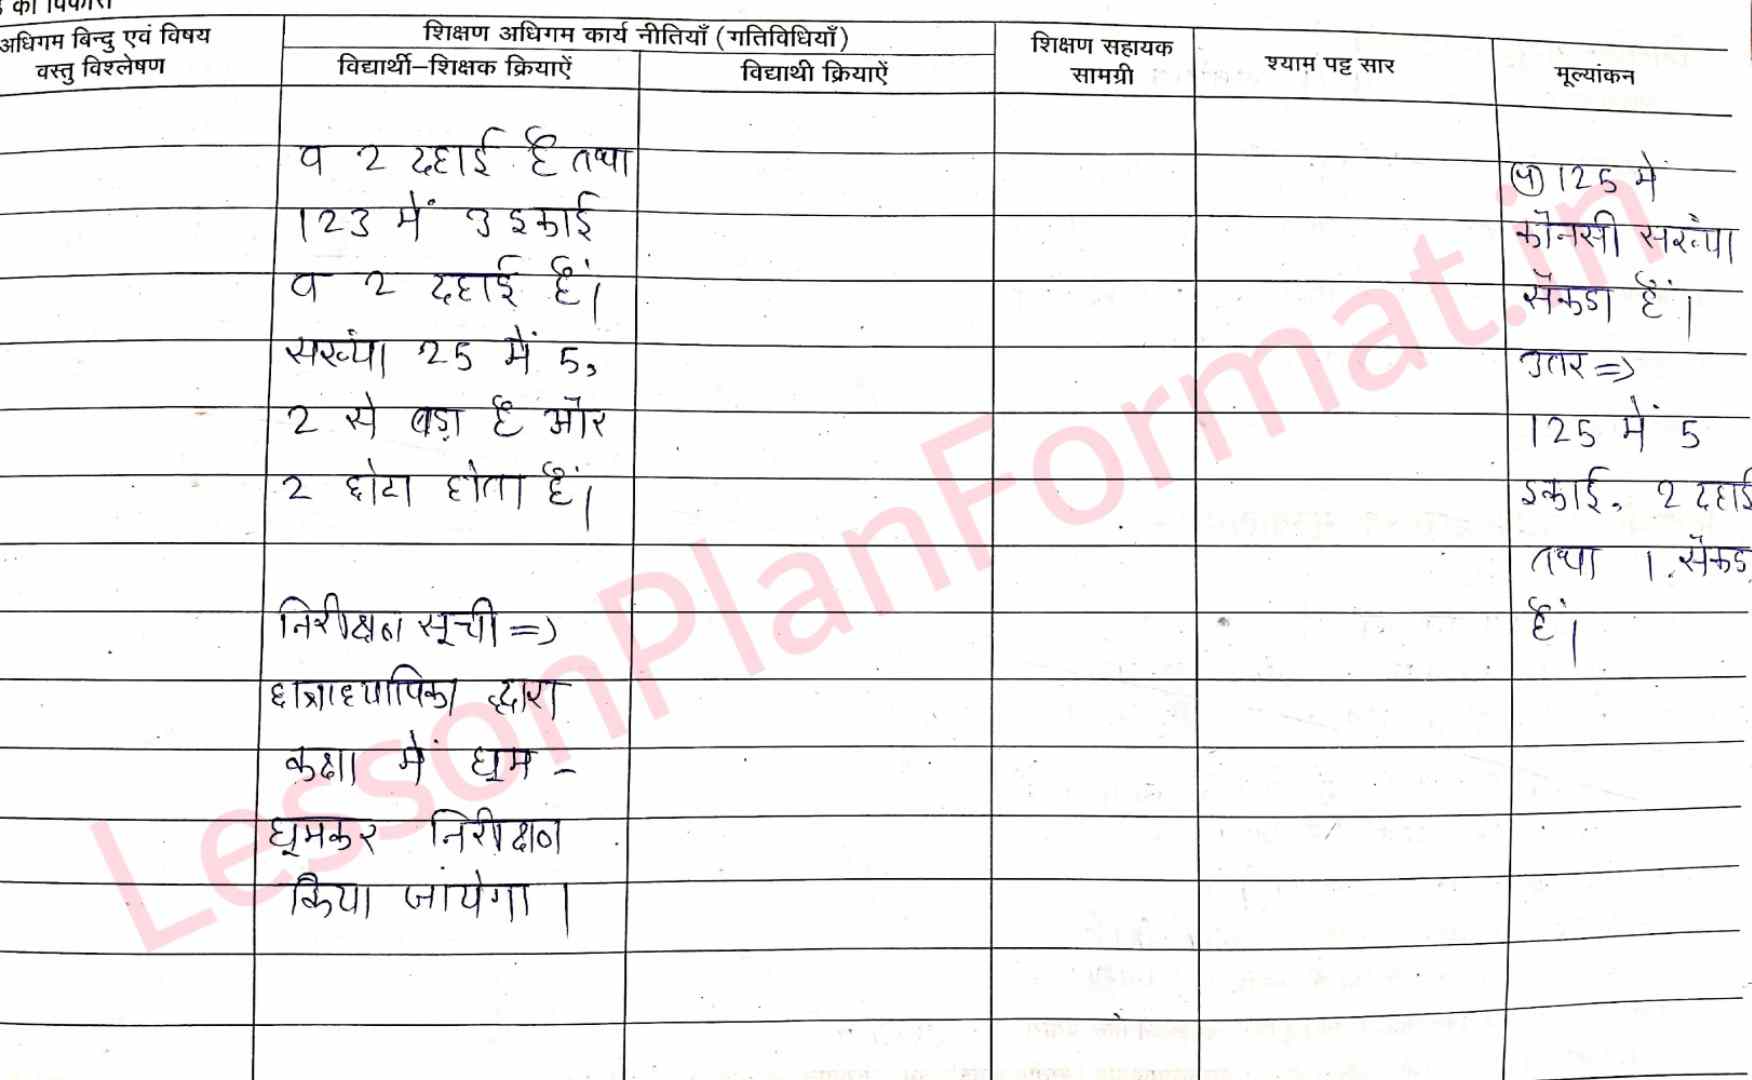 का विकास
अधिगम बिन्दु एवं विषय
वस्तु विश्लेषण
शिक्षण अधिगम कार्य नीतियाँ (गतिविधियाँ)
विद्यार्थी–शिक्षक क्रियाऐं
विद्याथी क्रियाऐं
शिक्षण सहायक
सामग्री
श्याम पट्ट सार
मूल्यांकन
व 2 दहाई है तथा
123 में 3 इकाई
व 2 दहाई हैं।
सख्यां 25 में 5,
2 से बड़ा है और
2 छोटा होता हैं।
निरीक्षण सूची =>
छात्राध्यापिका द्वारा
कक्षा में घूम -
घूमकर निरीक्षण
किया जांयेगा।
125 में
कौनसी सख्यां
सैकडा हैं।
उतर =>
125 में 5
इकाई, 2 दहाई
तथा 1 सैकड
हैं।
LessonPlanFormat.in